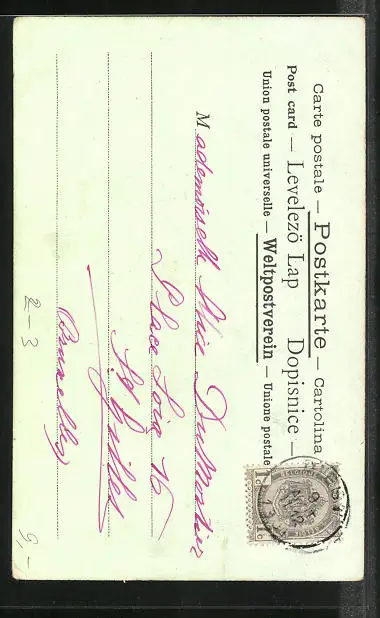 Carte postale — Postkarte — Cartolina
Post card — Levelezö Lap Dopisnice —
Union postale universelle — Weltpostverein — Unione postale
Mademoiselle Alice
Place Loix 16
St Gilles
Bruxelles
2-3
9,-
BELGIQUE
1c. 1c.